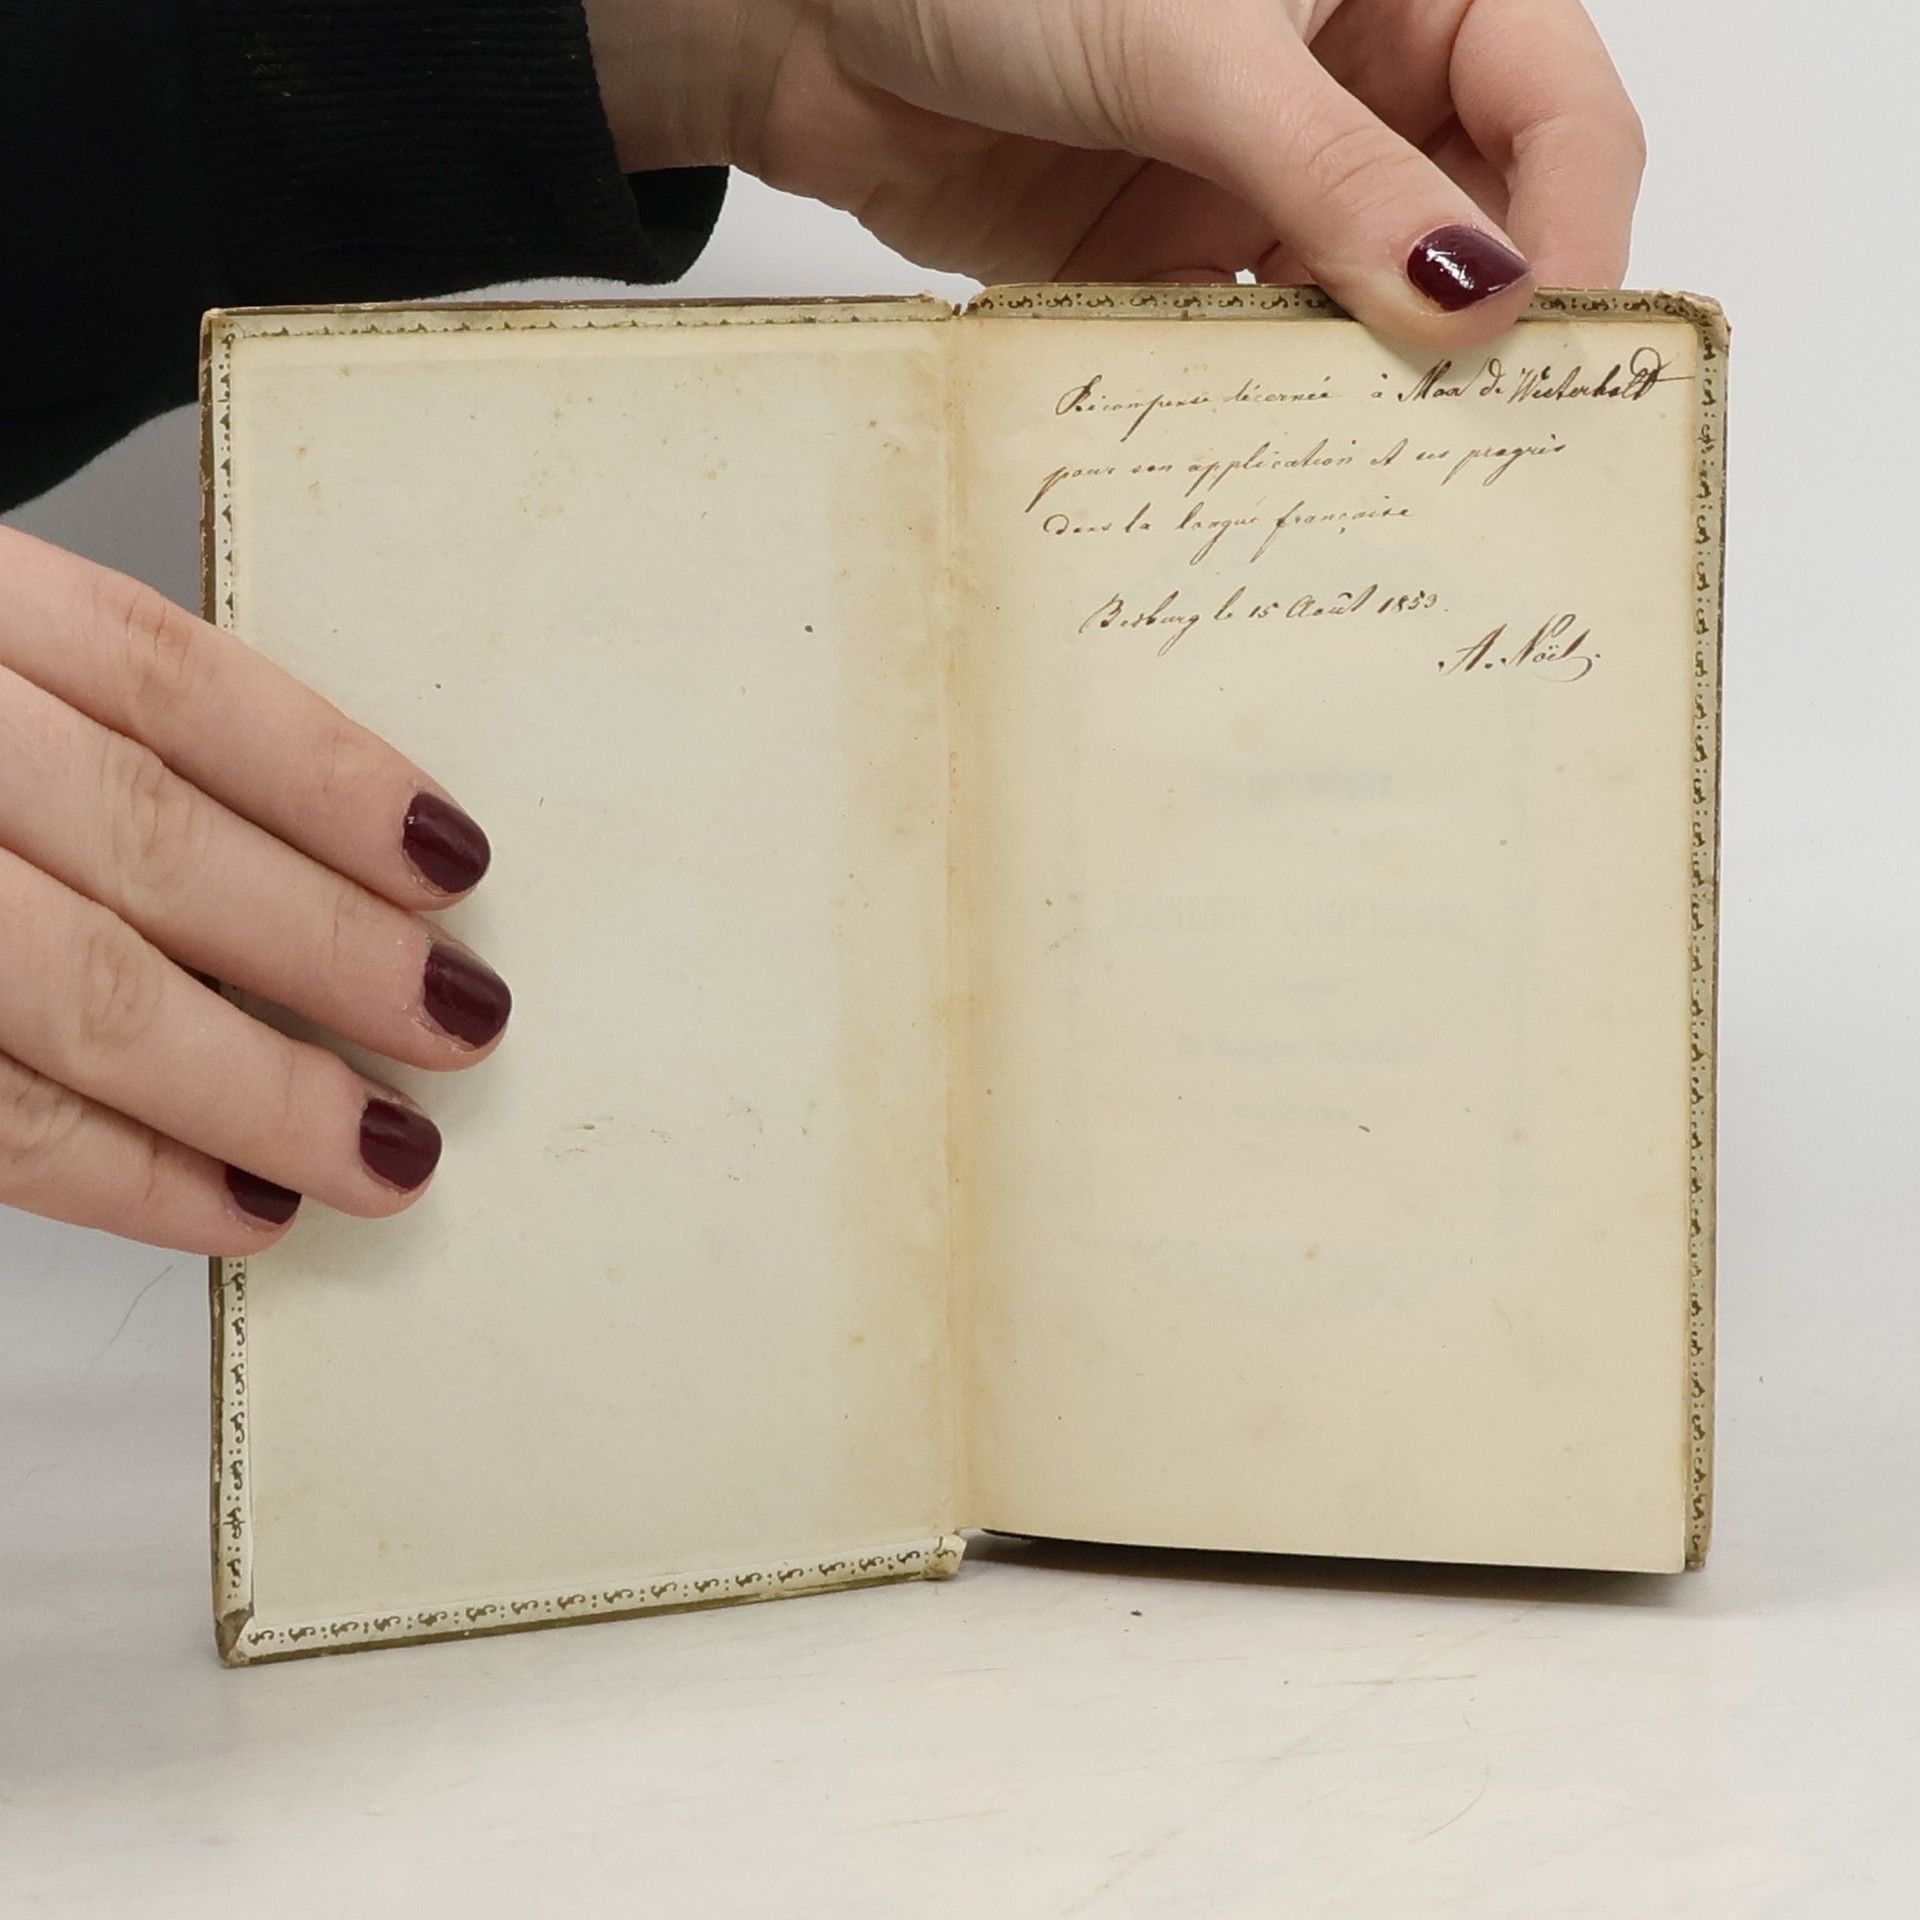 Récompense décernée à Max de Westerholt
pour son application et ses progrès
dans la langue française
Besburg le 15 Août 1853.
A. Noël.